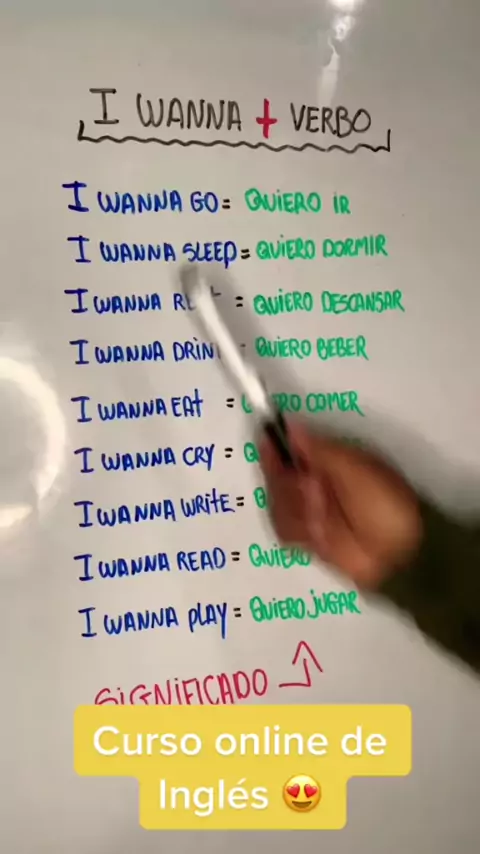 I WANNA + VERBO
I WANNA GO = QUIERO IR
I WANNA SLEEP = QUIERO DORMIR
I WANNA = QUIERO DESCANSAR
I WANNA = QUIERO BEBER
I WANNA EAT = COMER
I WANNA CRY =
I WANNA WRITE =
I WANNA READ = QUIERO
I WANNA PLAY = QUIERO JUGAR
SIGNIFICADO
Curso online de
Inglés 😍